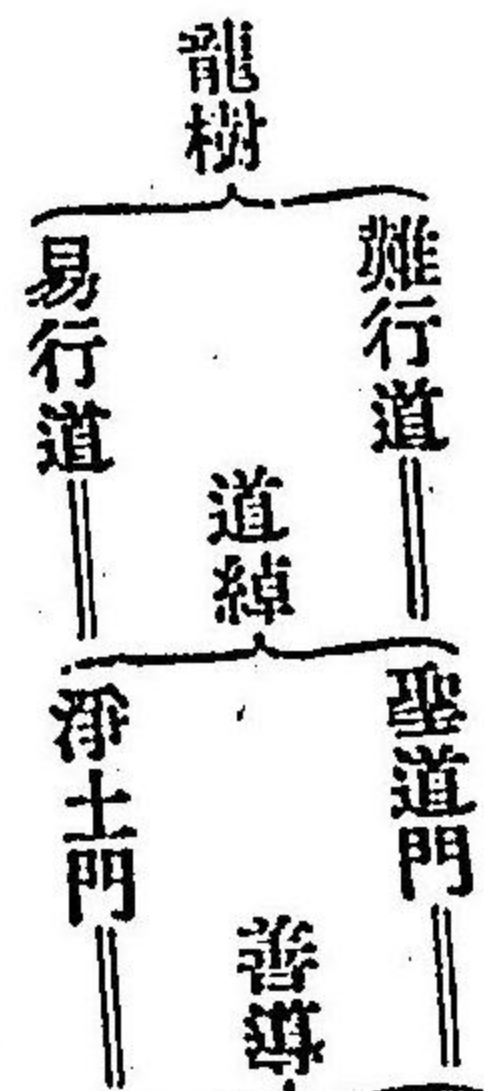 龍樹
難行道
易行道
道綽
聖道門
淨土門
善導